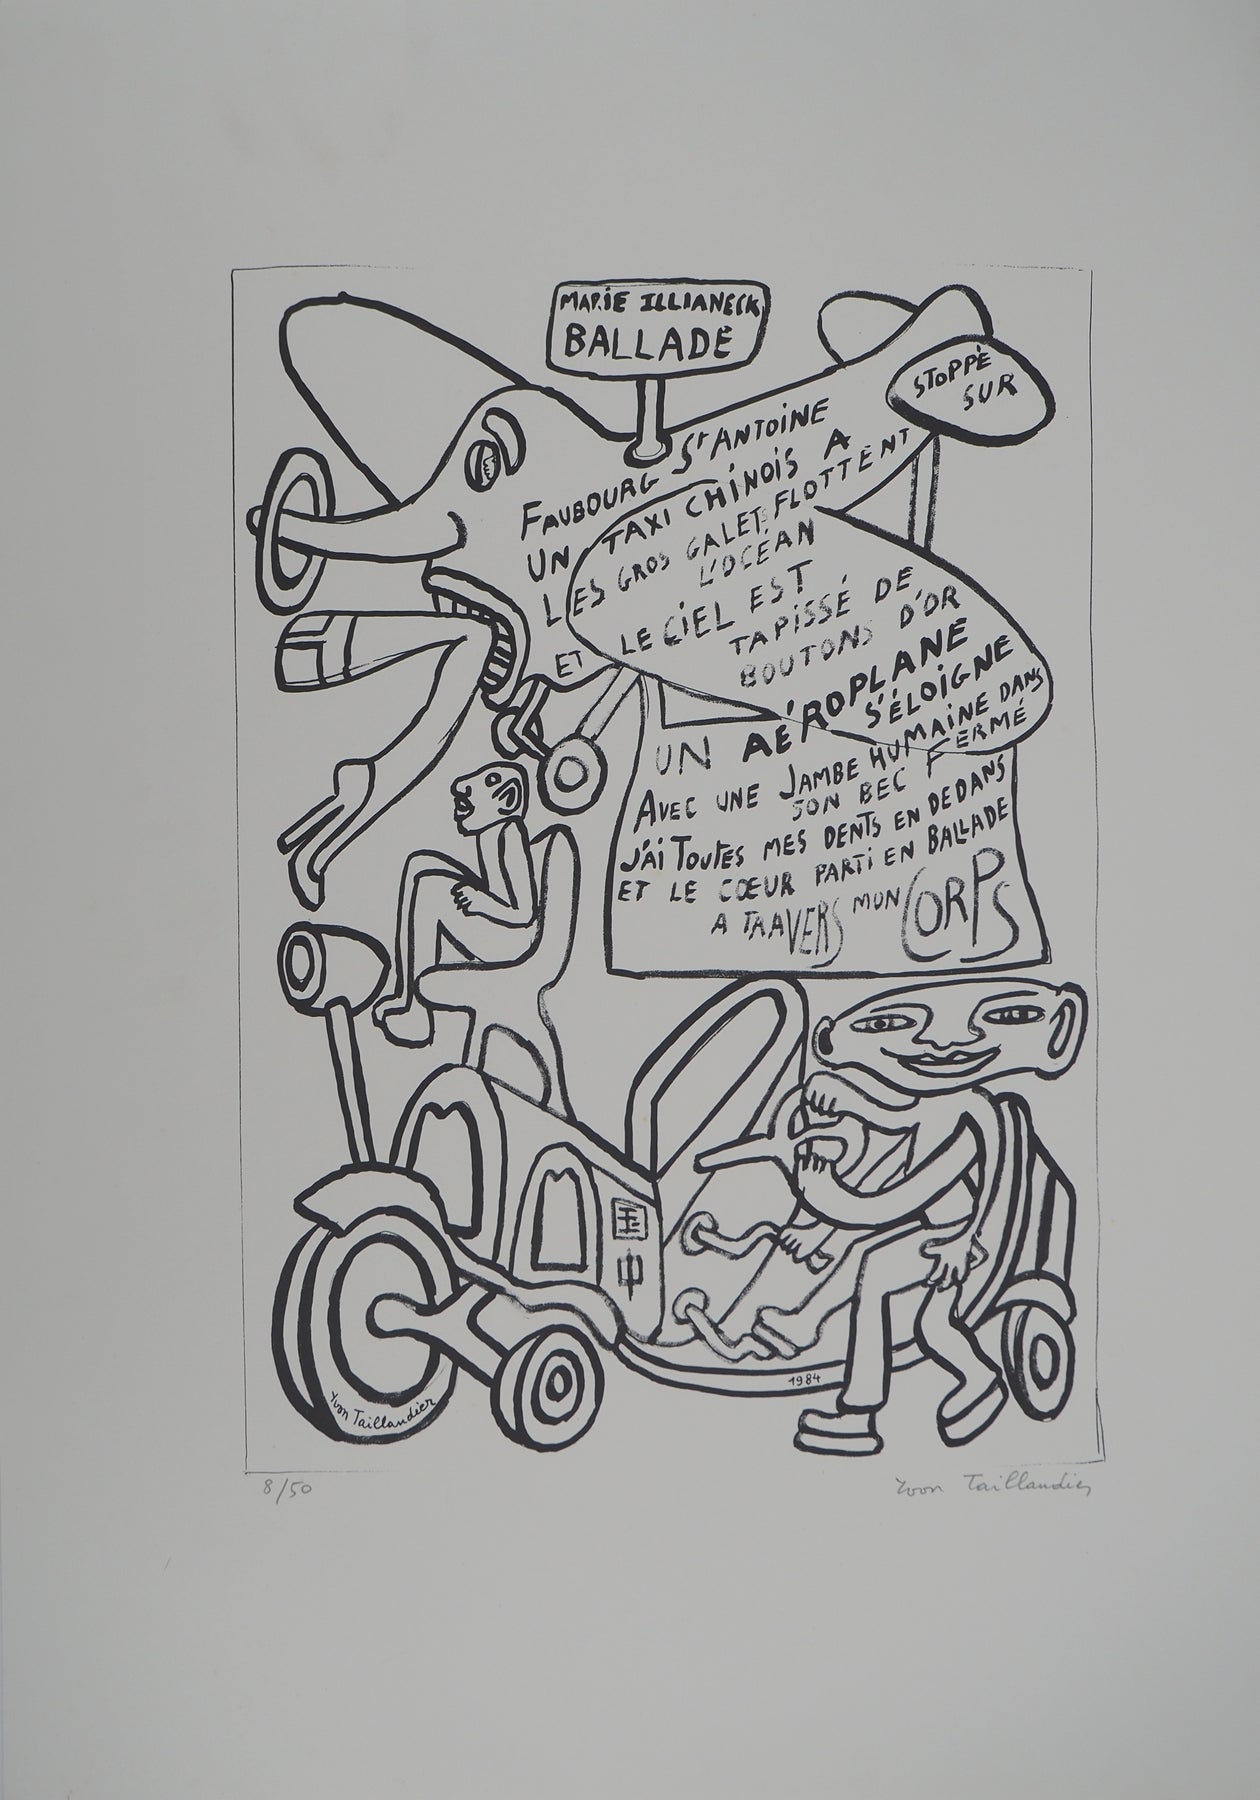 MARIE ILLIANECK
BALLADE
FAUBOURG St ANTOINE
UN TAXI CHINOIS A
STOPPÉ
SUR
LES GROS GALETS FLOTTENT
L'OCÉAN
ET LE CIEL EST
TAPISSÉ DE
BOUTONS D'OR
UN AÉROPLANE
S'ÉLOIGNE
AVEC UNE JAMBE HUMAINE DANS
SON BEC FERMÉ
J'AI TOUTES MES DENTS EN DEDANS
ET LE CŒUR PARTI EN BALLADE
A TRAVERS MON CORPS
国
中
1984
Yvon Taillandier
8/50
Yvon Taillandier